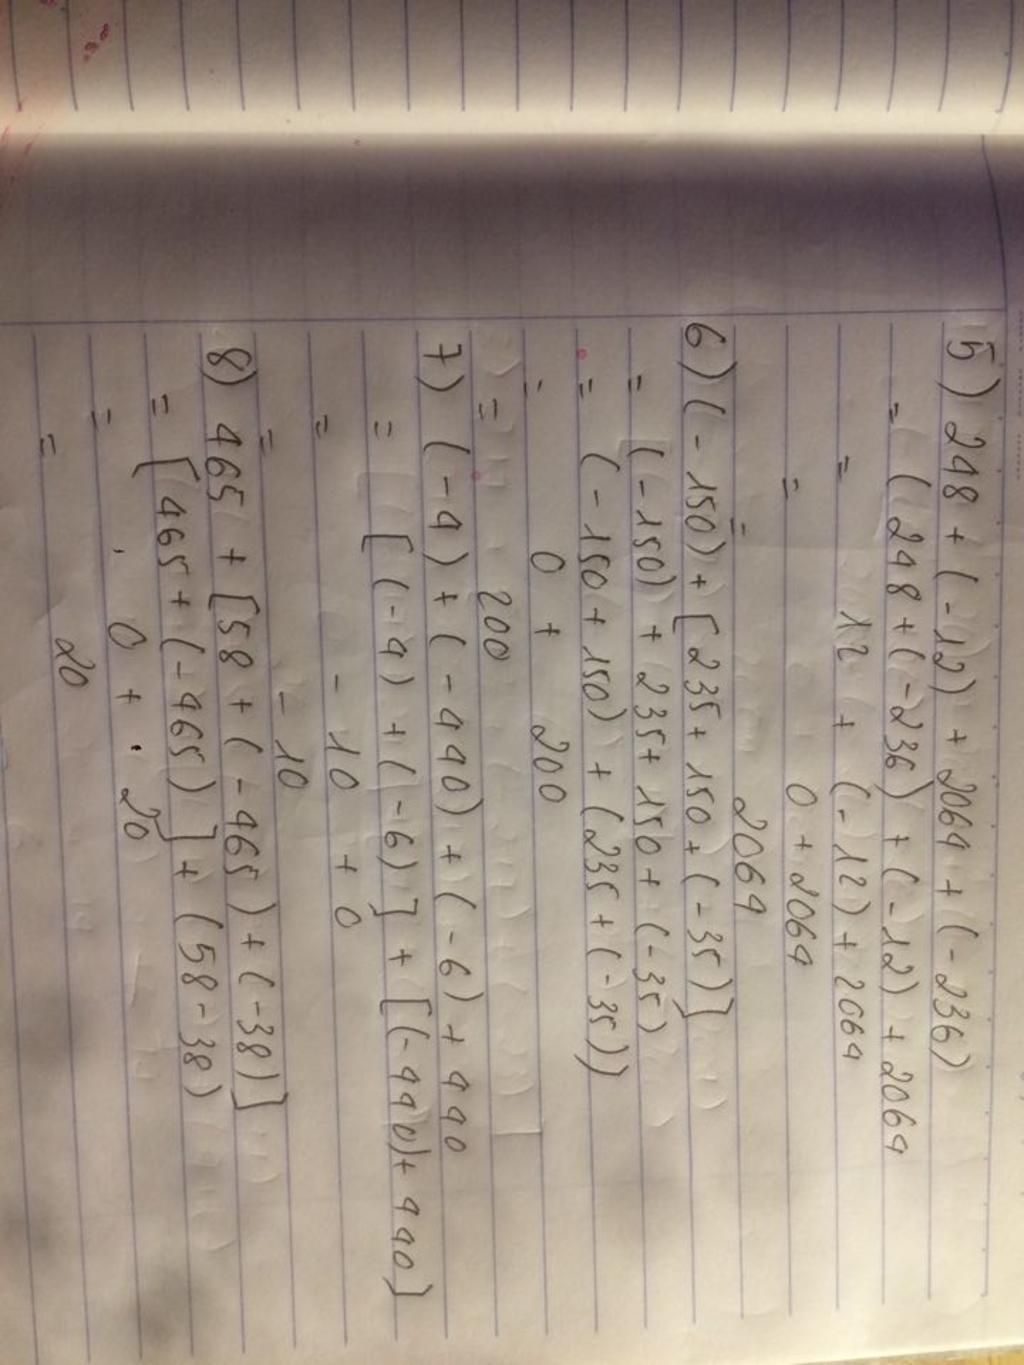 5) 248 + (-12) + 2064 + (-236)
= (248 + (-236) + (-12) + 2064
= 12 + (-12) + 2064
= 0 + 2064
= 2064
6) (-150) + [235 + 150 + (-35)]
= (-150) + 235 + 150 + (-35)
= (-150 + 150) + (235 + (-35))
= 0 + 200
= 200
7) (-4) + (-440) + (-6) + 440
= [(-4) + (-6)] + [(-440) + 440]
= -10 + 0
= -10
8) 465 + [58 + (-465) + (-38)]
= [465 + (-465)] + (58 - 38)
= 0 + 20
= 20